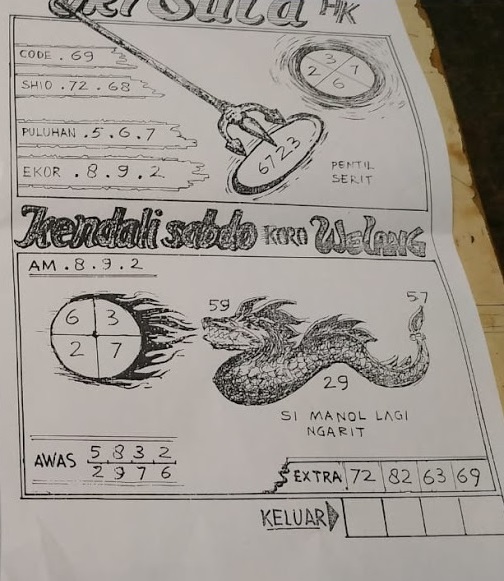 HK
CODE . 69
SHIO . 72 . 68
PULUHAN . 5 . 6 . 7
EKOR . 8 . 9 . 2
3
2 7
6
6723
PENTIL
SERIT
Kendali sabdo KIRO WELANG
AM . 8 . 9 . 2
6 3
2 7
59
57
29
SI MANOL LAGI
NGARIT
AWAS 5 8 3 2
2 9 7 6
EXTRA 72 82 63 69
KELUAR